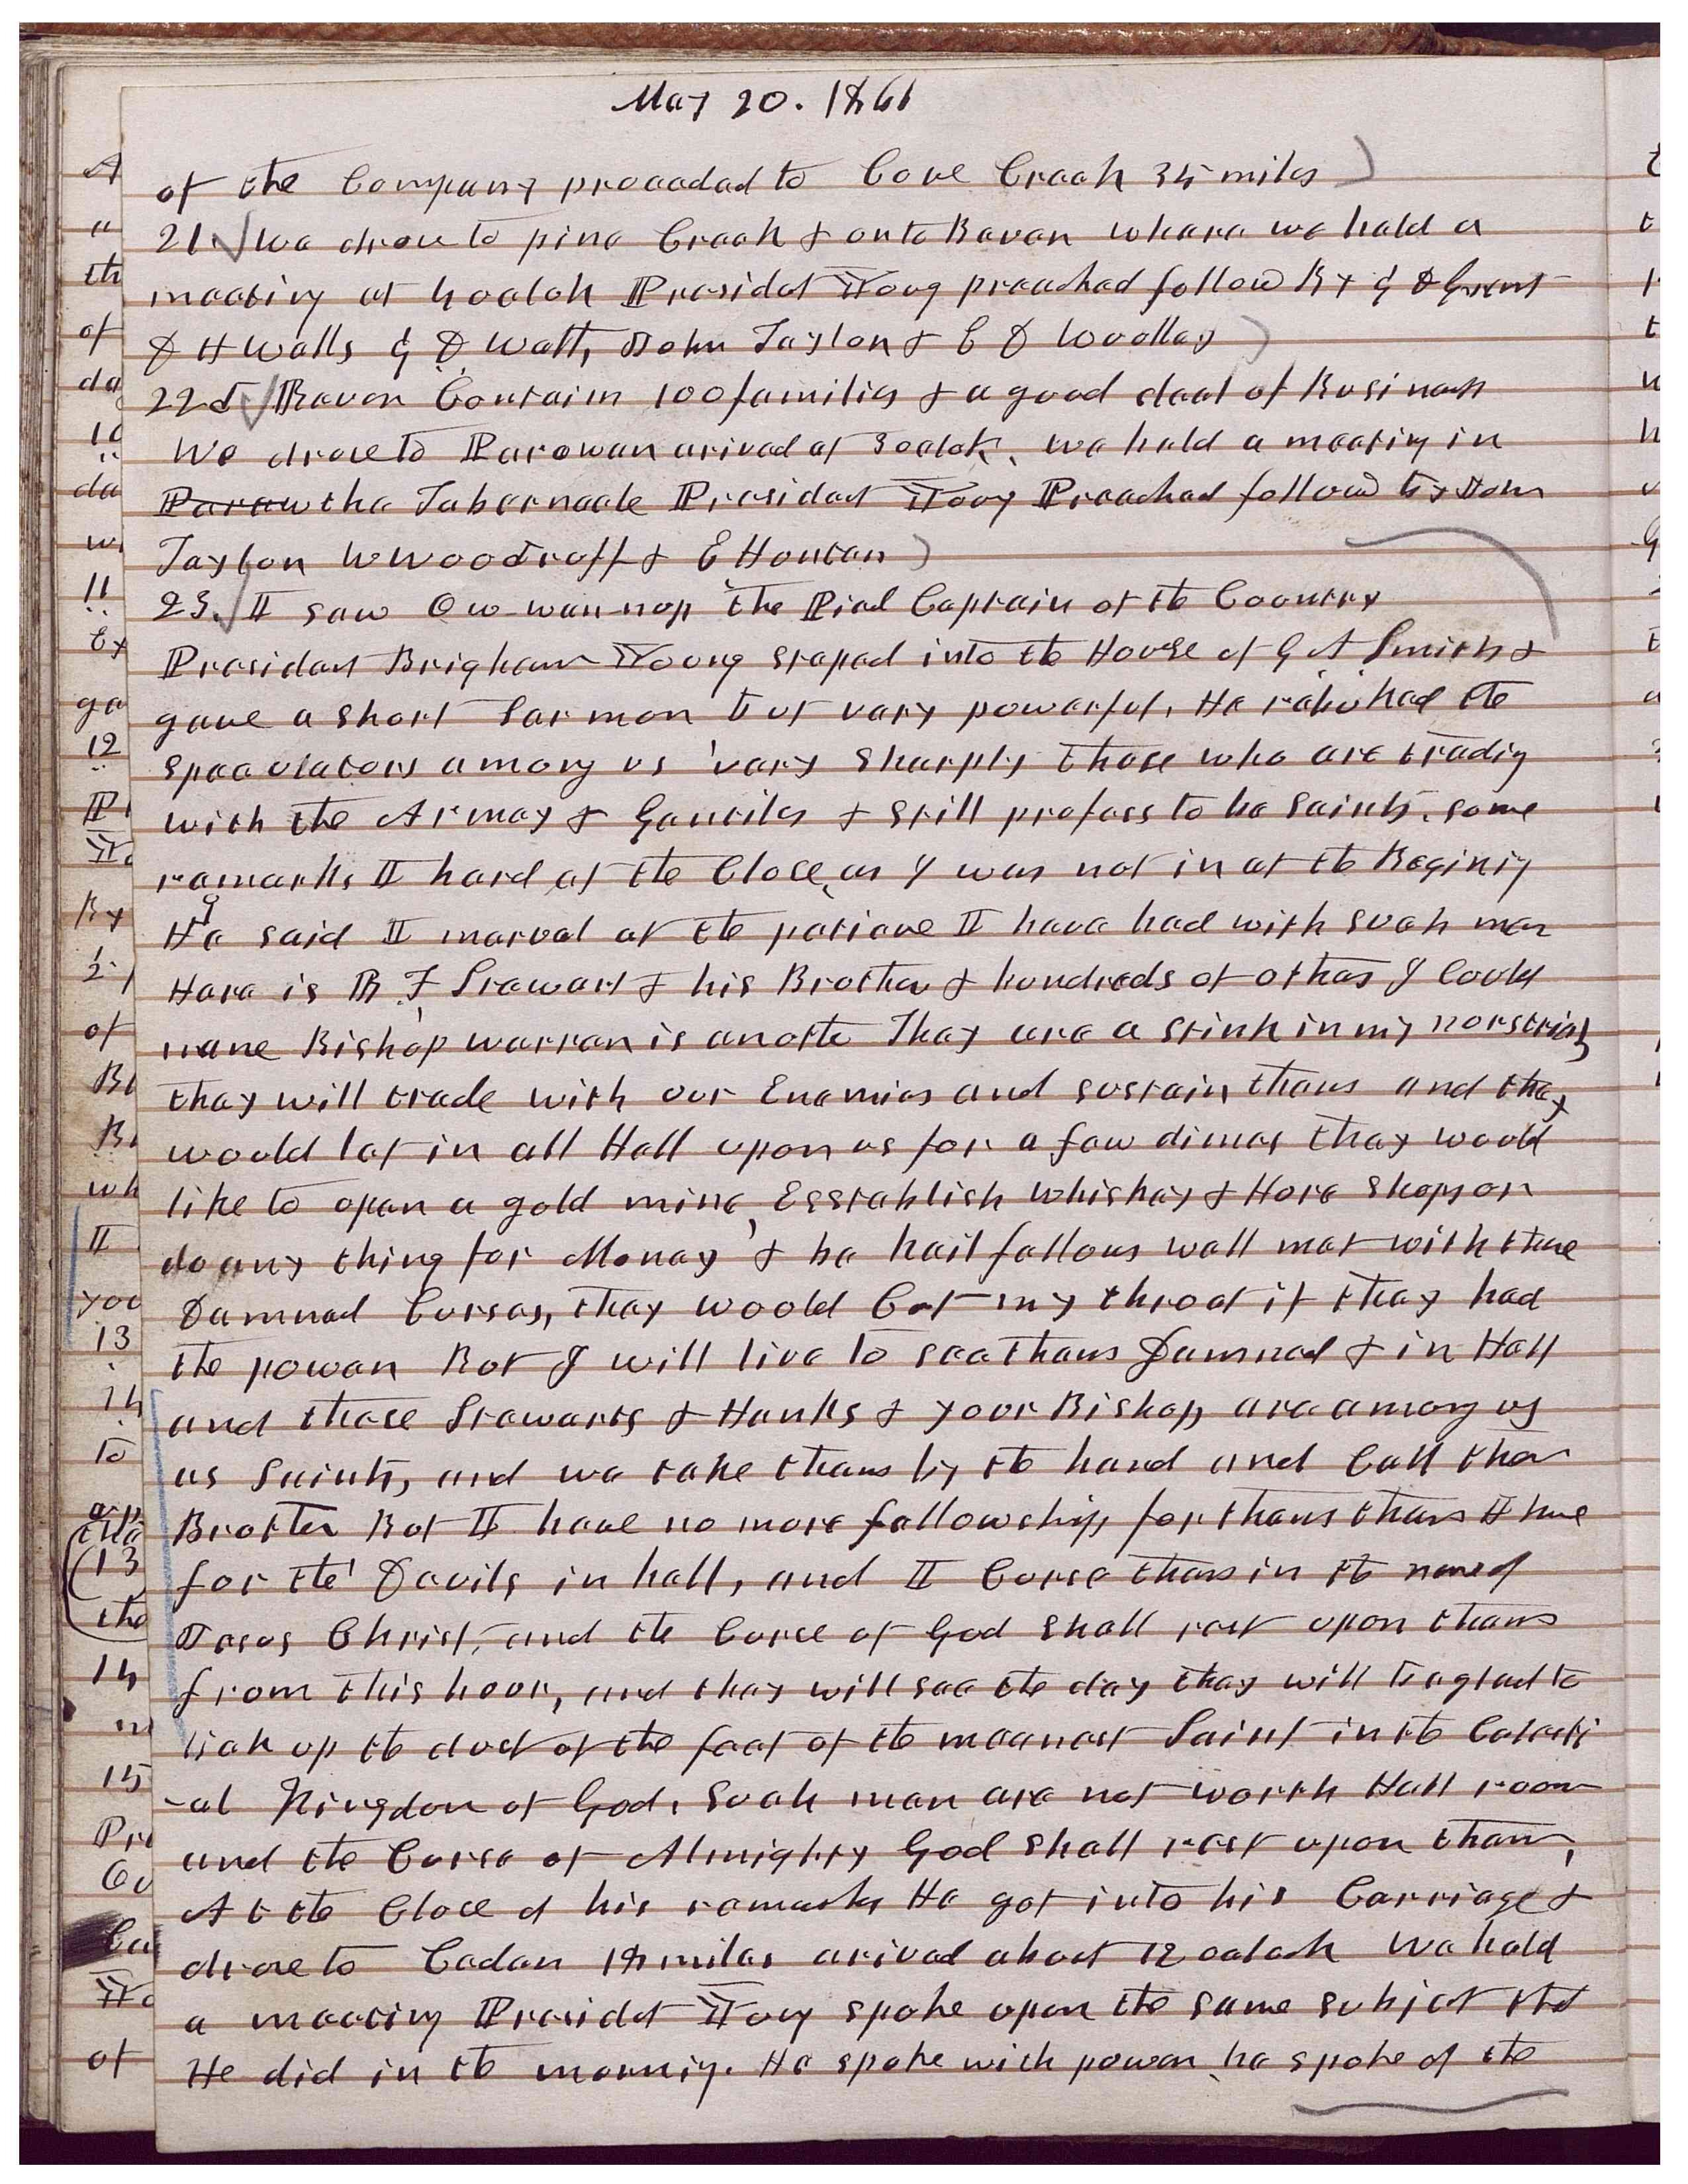 May 20. 1861
of the Company proceeded to Cove Creek 35 miles
21. We drove to pine Creek & on to Bever where we held a
meeting at 4 oclok President Young preached follow By G D Grant
D H Wells G D Watt, John Taylor & E D Woolley
22d Bever Contain 100 families & a good deal of Business
We drove to Parowan arived at 3 oclok. we held a meeting in
Paraw the Tabernacle President Young Preached followd by John
Taylor W Woodruff & E Hunter
23. I saw Ow-wan-nop the Pied Captain of the Country
President Brigham Young steped into the House of G A Smith &
gave a short Sermon but very powerful. He rebuked the
speculators among us very sharply those who are trading
with the Armey & Gentiles & still profess to be Saints. some
remarks I herd at the Close, as I was not in at the Begining
He said I marvel at the patiance I have had with such men
Here is B. F Stewart & his Brother & hundreds of others I could
name Bishop warren is anothe They are a stink in my norstrials
they will trade with our Enemies and sustain them and they
would let in all Hell upon us for a few dimes they would
like to open a gold mine, Esstablish whiskey & Hore Shops or
do any thing for Money & be hail fellows well met with those
Damned Curses, they would Cut my throat if they had
the power But I will live to see them Damned & in Hell
and those Stewarts & Hanks & your Bishop are among us
as Saints, and we take them by the hand and Call them
Brother But I have no more fellowship for them than I have
for the Devils in hell, and I Curse them in the name of
Jesus Christ, and the Curse of God shall rest upon them
from this hour, and they will see the day they will be glad to
lick up the dust of the feet of the meanest Saint in the Celesti
-al Kingdom of God. Such men are not worth Hell room
and the Curse of Almighty God shall rest upon them,
At the Close of his remarks He got into his Carriage &
drove to Cedar 18 miles arived about 12 oclock We held
a meeting President Young spoke upon the same subject that
He did in the morning. He spoke with power, he spoke of the